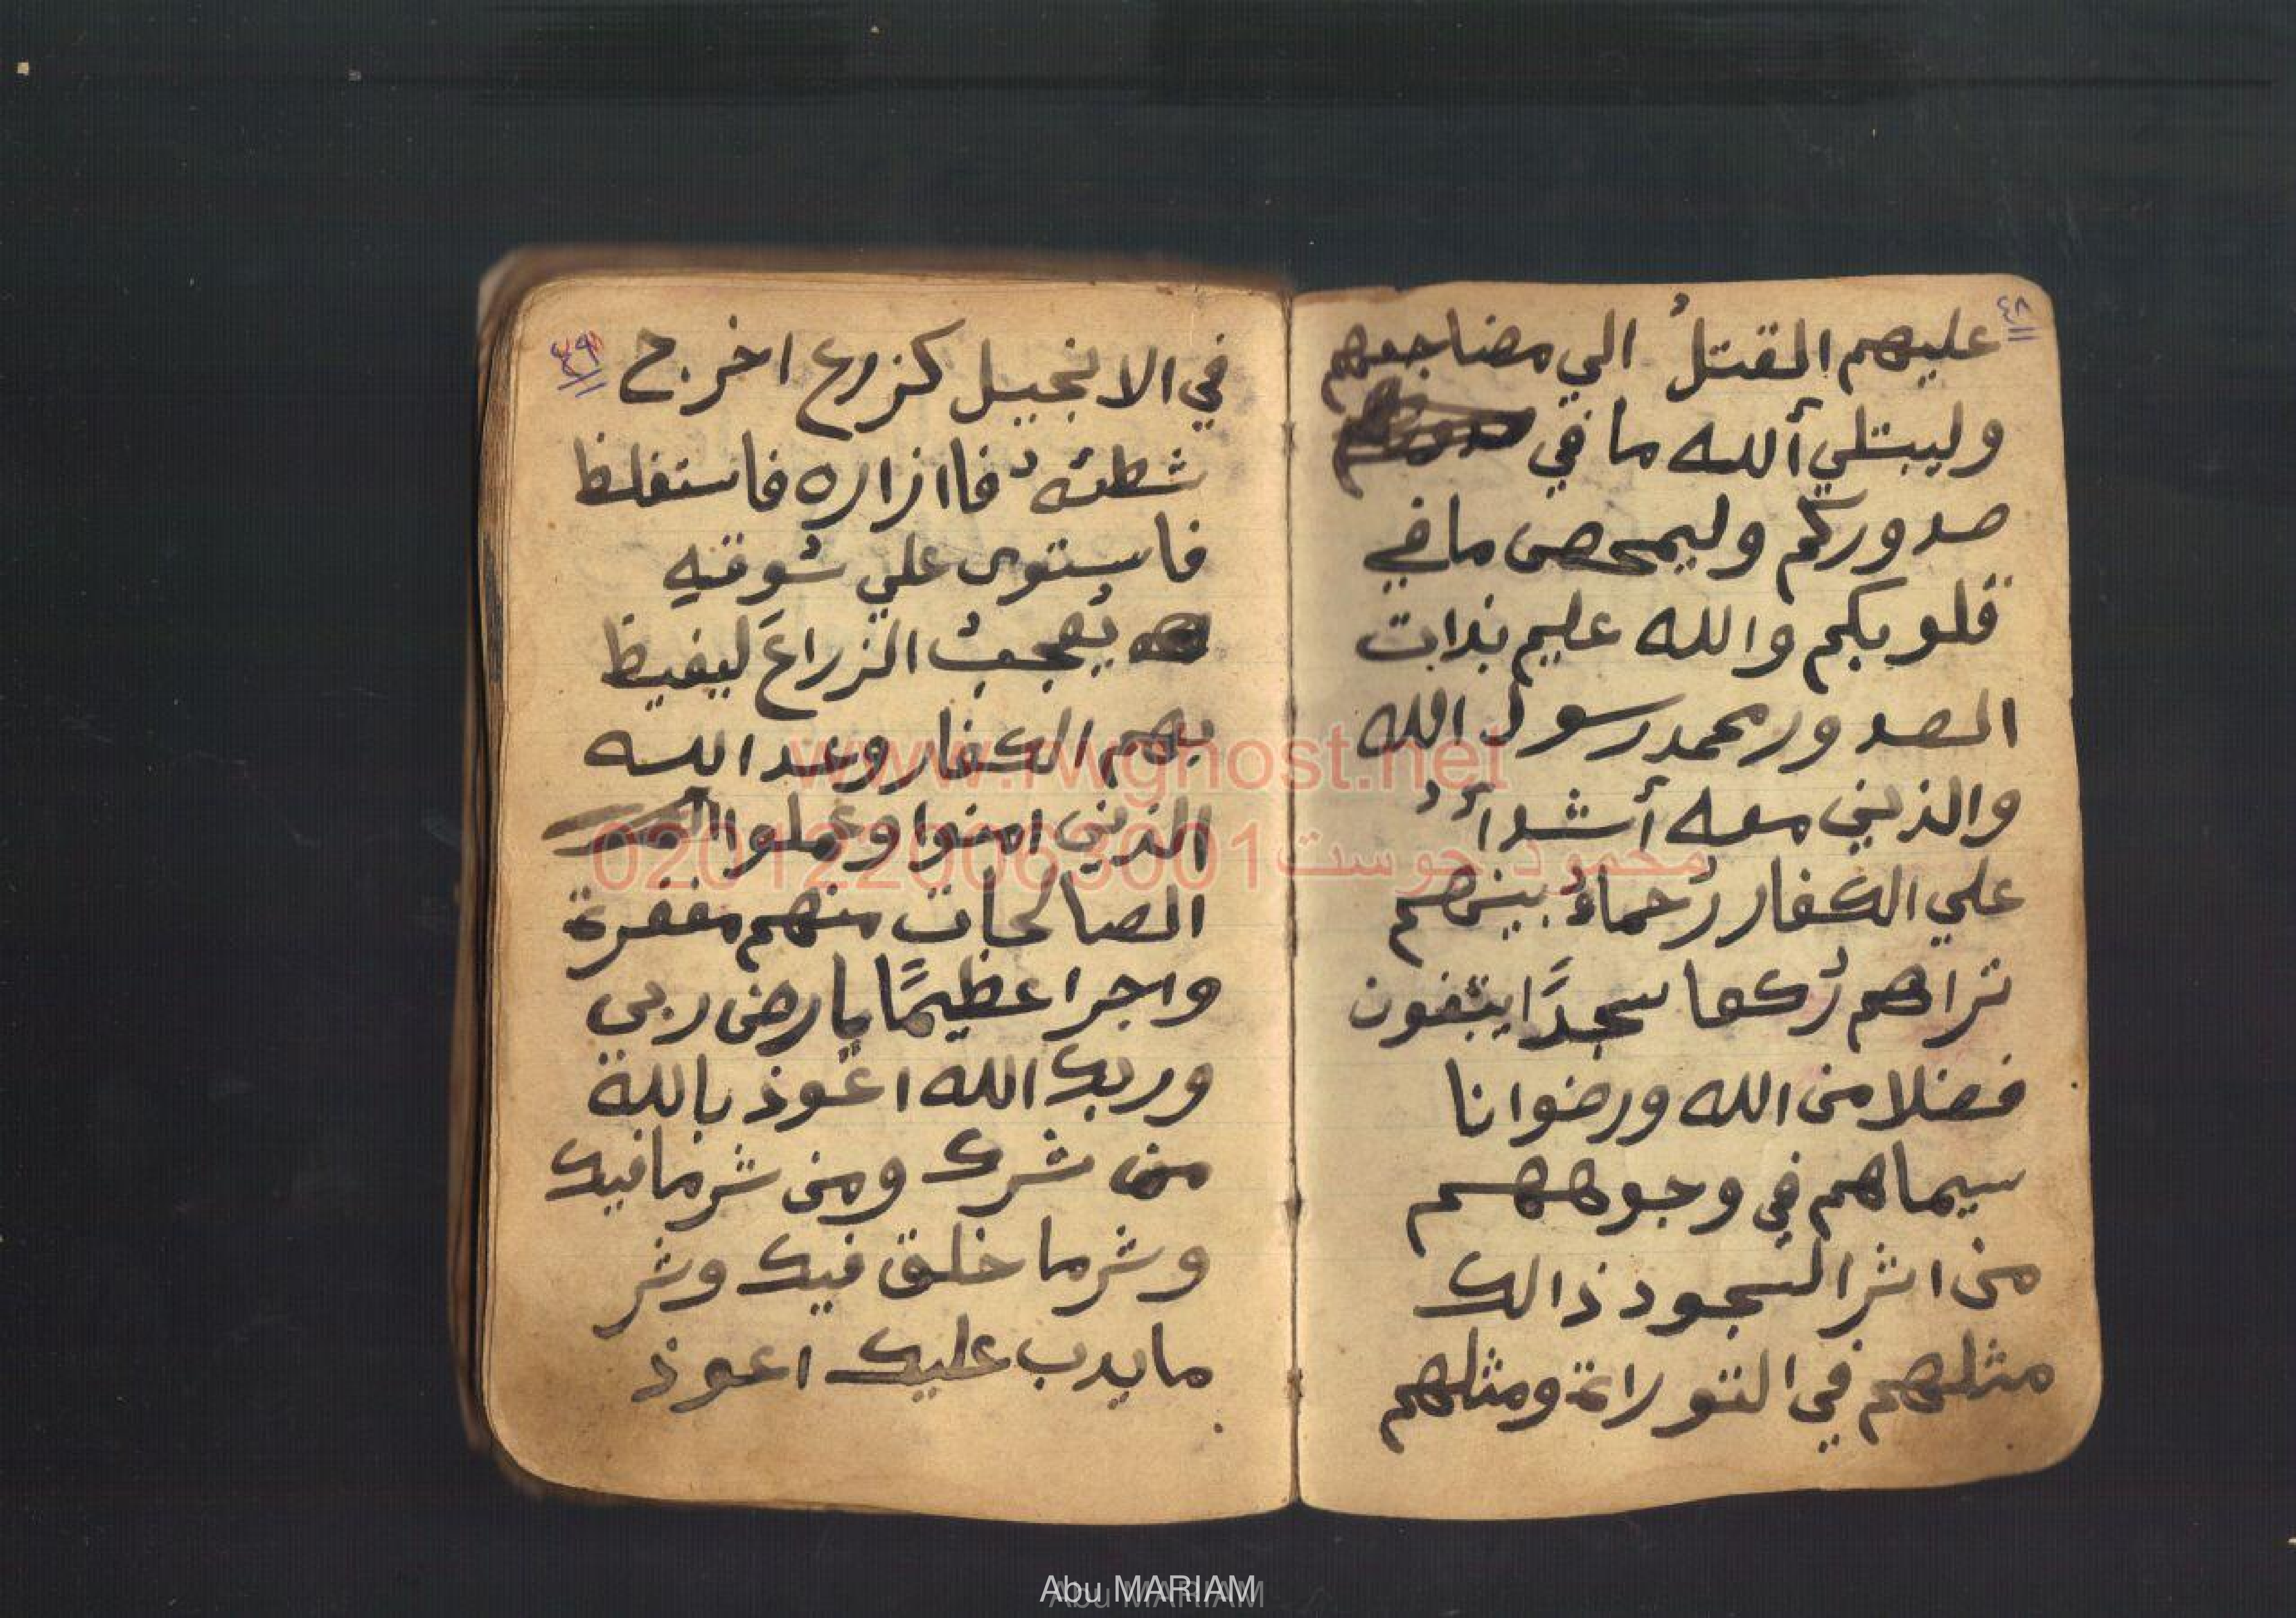 ٤٨
عليهم القتلُ الي مضاجعهم
وليبتلي ألله ما في
صدوركم وليمحص ما في
قلوبكم والله عليم بذات
الصدور محمد رسول الله
والذين معه أشدأُ
علي الكفار رُحماءُ بينهم
تراهم رُكعا سجدًا يبتغون
فضلا من الله ورضوانا
سيماهم في وجوههم
من اثر السجود ذالك
مثلهم في التوراة ومثلهم
٤٩
في الانجيل كزرع اخرج
شطئهُ فاازاره فاستغلظ
فاستوى علي سُوقه
يُعجبُ الزراعَ ليغيظ
بهم الكفار وعد الله
الذين امنوا وعملوا
الصالحات منهم مغفرة
واجرا عظيمًا يا رض ربي
وربك الله اعوذ بالله
من شرك ومن شر ما فيك
وشر ما خلق فيك وشر
ما يدب عليك اعوذ
www.rwghost.net
محمود جوست 0201220063001
Abu MARIAM